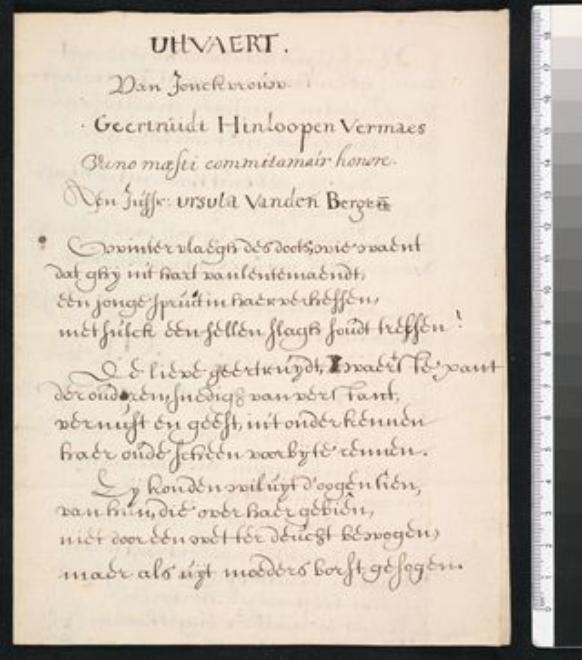 UIIVAERT.
Van Jonckvrouw
Geertruidt Hinloopen Vermaes
mæsti commitamur honore.
Aen Juffr: Ursula Vanden Bergen
O wintervlaegh des doots, wie waent
dat ghy uit hart van lentemaendt,
een jonge spruit in haer verheffen,
met sulck een fellen slagh soudt treffen!
De lieve geertruydt, 't waerste pant
der ouderen, snedigh van verstant,
vernuft en geest, uit onderkennen
haer oude scheen voorby te rennen.
Sy konden wil uyt d'oogen sien,
van hun, die over haer gebiên,
niet door een wet ter deucht bewogen,
maer als uyt moeders borst gesogen.